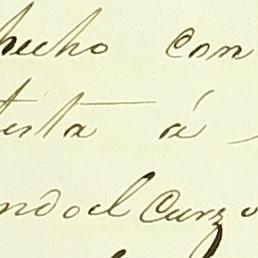 hecho con
testa á
ndo el Curzo